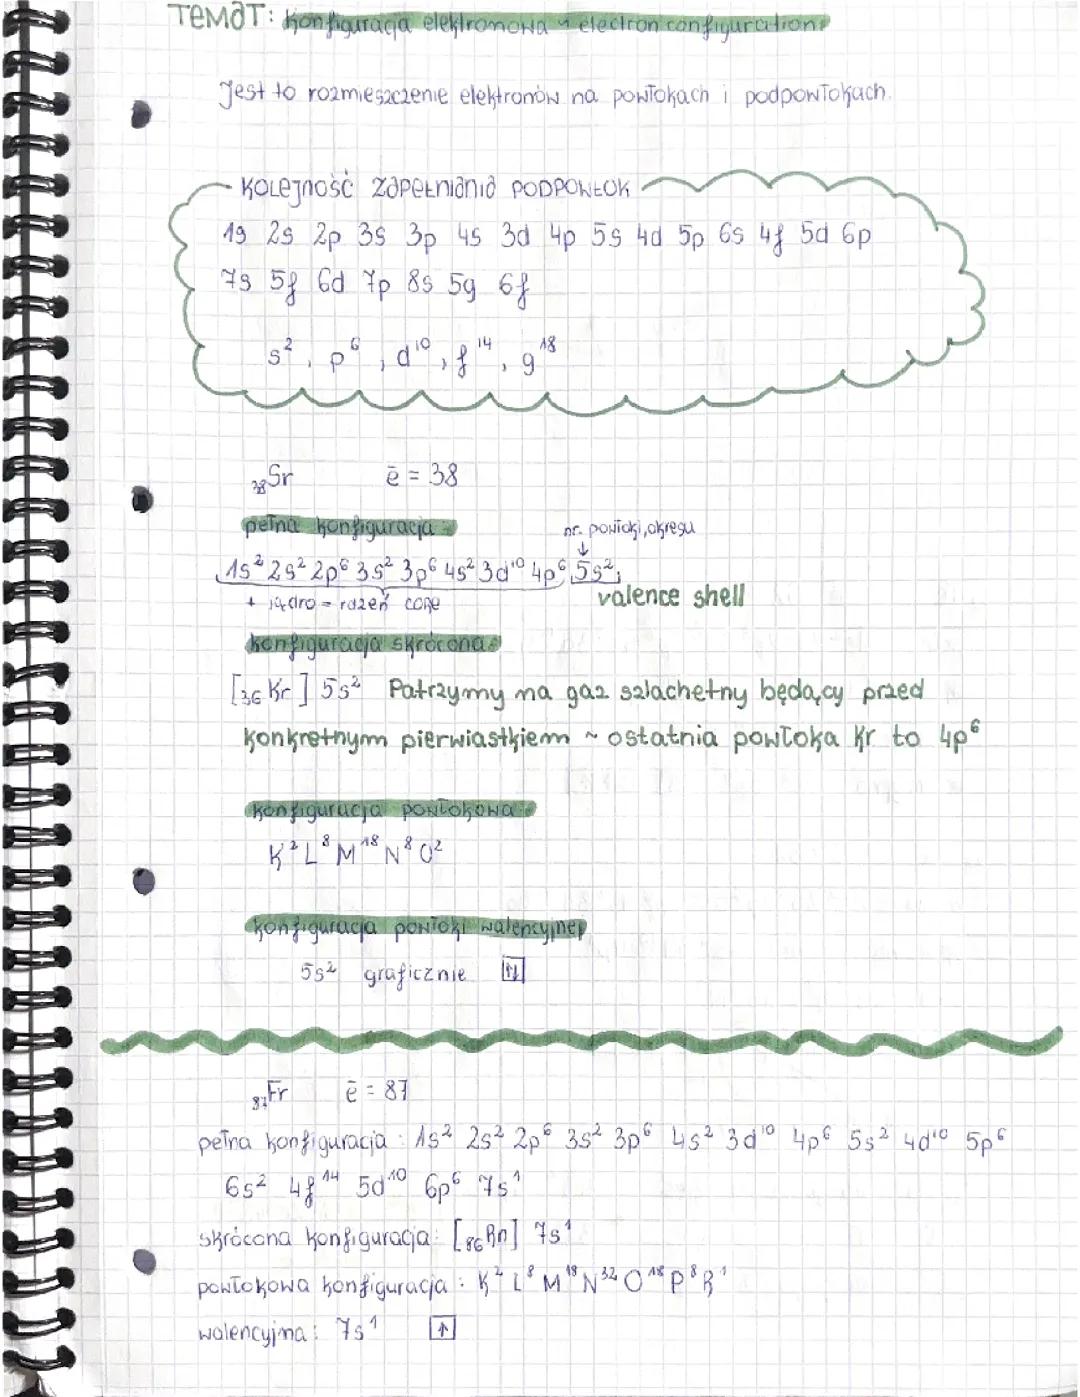 TEMAT: Konfiguracja elektronowa ~ electron configuration
Jest to rozmieszczenie elektronów na powłokach i podpowłokach.
KOLEJNOŚĆ ZAPEŁNIANIA PODPOWŁOK
1s 2s 2p 3s 3p 4s 3d 4p 5s 4d 5p 6s 4f 5d 6p
7s 5f 6d 7p 8s 5g 6f
s², p⁶, d¹⁰, f¹⁴, g¹⁸
₃₈Sr ē = 38
pełna konfiguracja
nr. powłoki, okresu
↓
1s² 2s² 2p⁶ 3s² 3p⁶ 4s² 3d¹⁰ 4p⁶ 5s²
+ jądro = rdzeń core valence shell
konfiguracja skrócona
[₃₆Kr] 5s² Patrzymy na gaz szlachetny będący przed
konkretnym pierwiastkiem ~ ostatnia powłoka Kr to 4p⁶
konfiguracja powłokowa
K² L⁸ M¹⁸ N⁸ O²
konfiguracja powłoki walencyjnej
5s² graficznie ↑↓
₈₇Fr ē = 87
pełna konfiguracja: 1s² 2s² 2p⁶ 3s² 3p⁶ 4s² 3d¹⁰ 4p⁶ 5s² 4d¹⁰ 5p⁶
6s² 4f¹⁴ 5d¹⁰ 6p⁶ 7s¹
skrócona konfiguracja: [₈₆Rn] 7s¹
powłokowa konfiguracja: K² L⁸ M¹⁸ N³² O¹⁸ P⁸ R¹
walencyjna: 7s¹ ↑